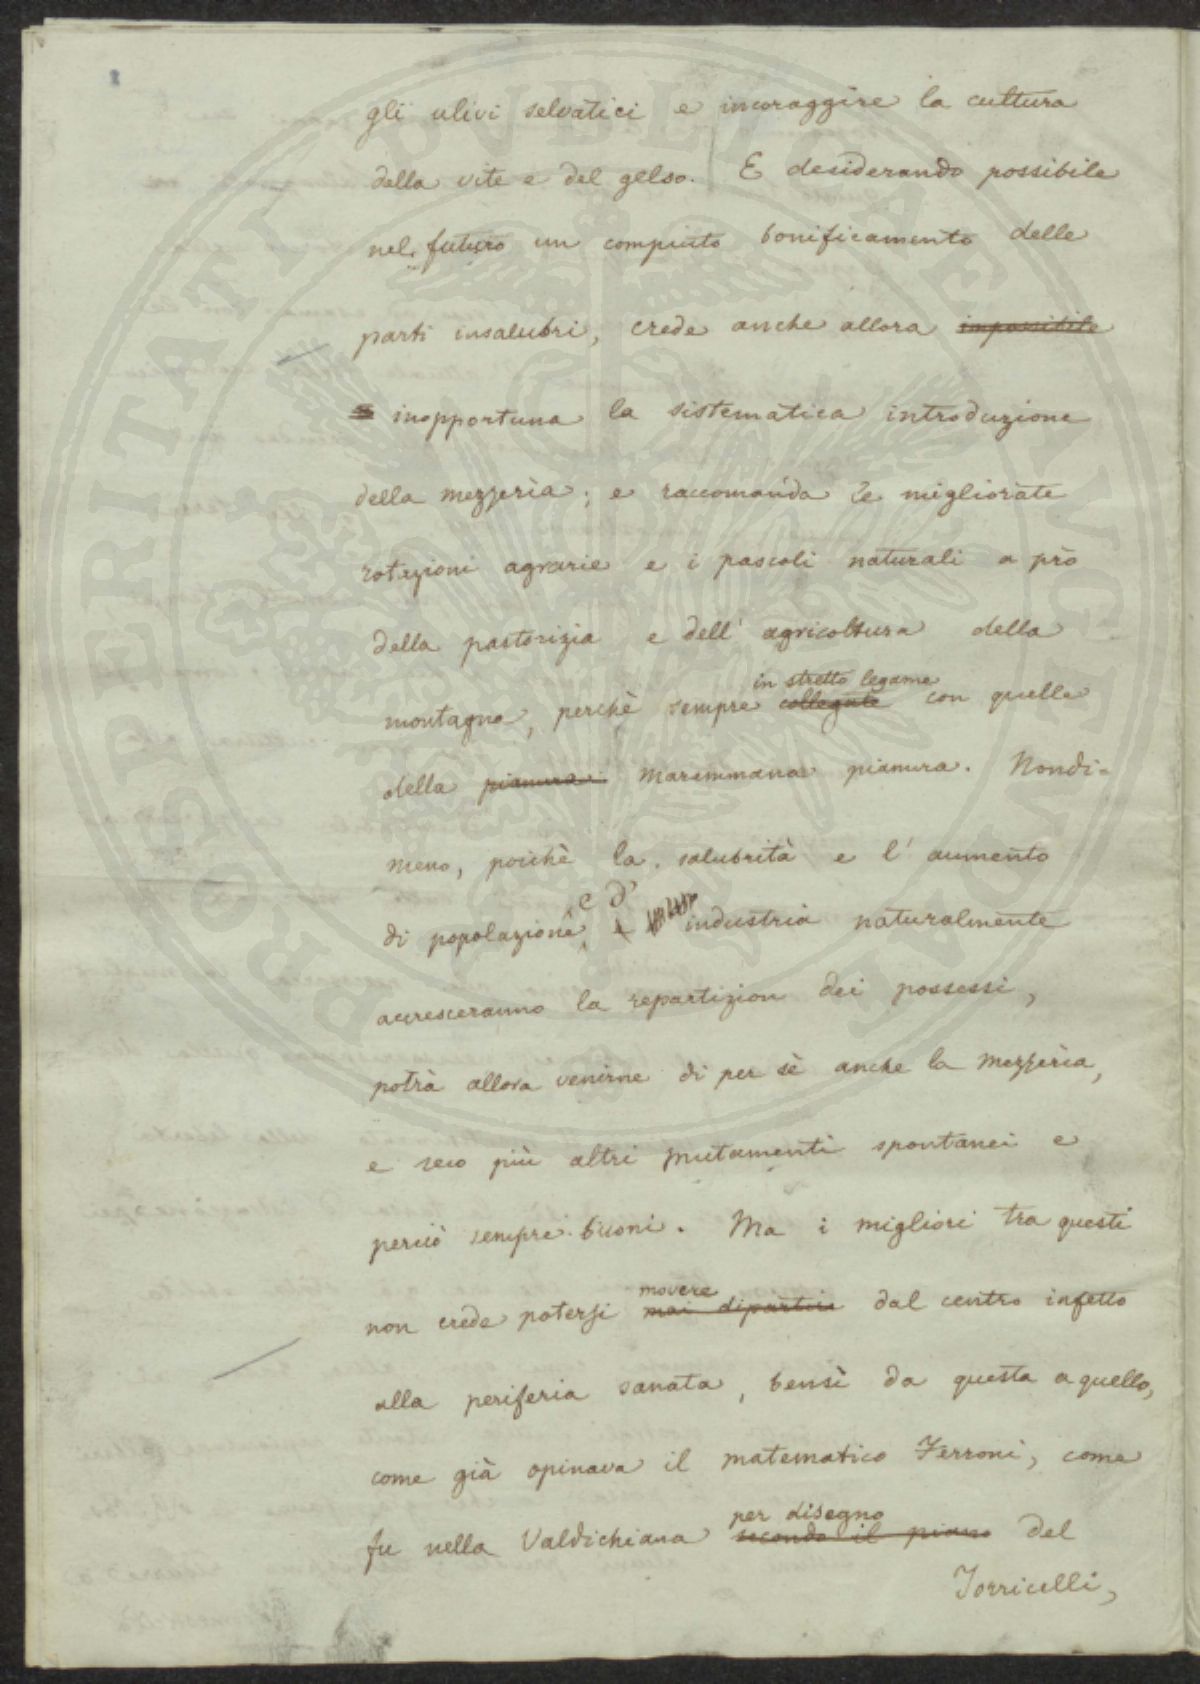 gli ulivi selvatici e incoraggire la cultura
della vite e del gelso. E desiderando possibile
nel futuro un compiuto bonificamento delle
parti insalubri, crede anche allora impossibile
inopportuna la sistematica introduzione
della mezzeria; e raccomanda le migliorate
rotazioni agrarie e i pascoli naturali a prò
della pastorizia e dell' agricoltura della
in stretto legame
montagna, perchè sempre collegate con quelle
della pianura maremmana pianura. Nondi-
meno, poichè la salubrità e l' aumento
e d'
di popolazione, industria naturalmente
accresceranno la repartizion dei possessi,
potrà allora venirne di per sè anche la mezzeria,
e seco più altri mutamenti spontanei e
perciò sempre buoni. Ma i migliori tra questi
movere
non crede potersi mai dipartire dal centro infetto
alla periferia sanata, bensì da questa a quello,
come già opinava il matematico Ferroni, come
per disegno
fu nella Valdichiana secondo il piano del
Torricelli,
PROSPERITATI PVBLICAE AVGENDAE